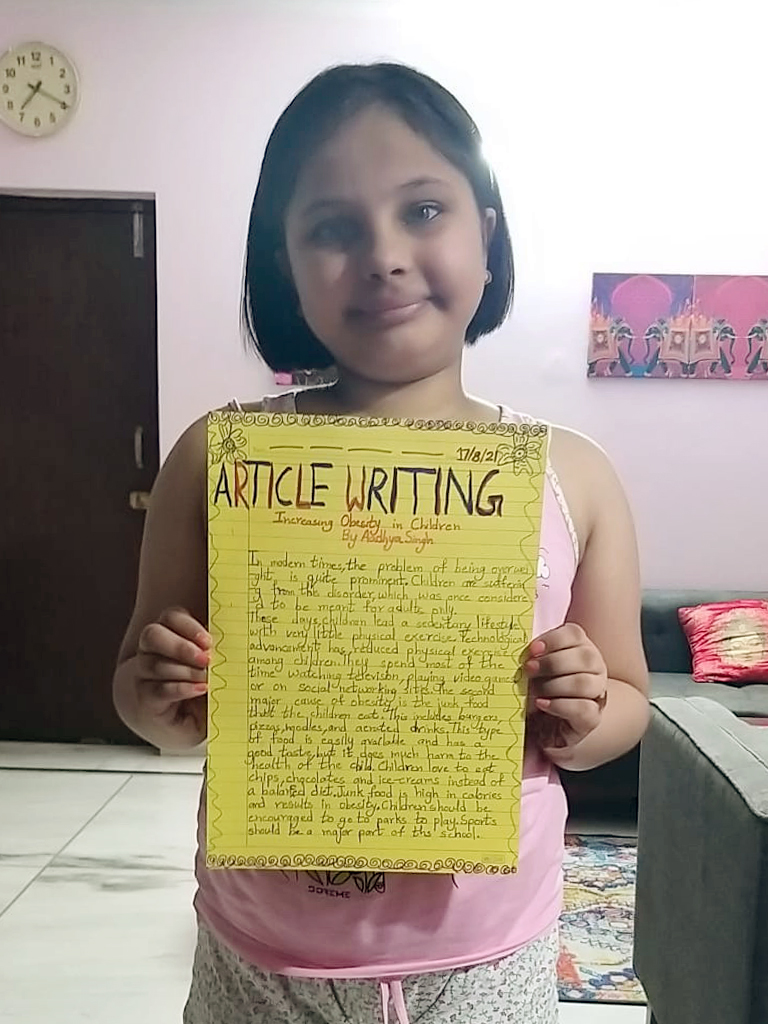 12
1
2
3
4
5
6
7
8
9
10
11
17/8/21
ARTICLE WRITING
Increasing Obesity in Children
By Aadhya Singh
In modern times, the problem of being overwei
ght is quite prominent. Children are sufferin
g from this disorder, which was once considere
d to be meant for adults only.
These days, children lead a sedentary lifestyle
with very little physical exercise. Technological
advancement has reduced physical exercise
among children. They spend most of the
time watching television, playing video games
or on social networking sites. The second
major cause of obesity is the junk food
that the children eat. This includes burgers,
pizzas, noodles, and aerated drinks. This type
of food is easily available and has a
good taste, but it does much harm to the
health of the child. Children love to eat
chips, chocolates and ice-creams instead of
a balanced diet. Junk food is high in calories
and results in obesity. Children should be
encouraged to go to parks to play. Sports
should be a major part of the school.